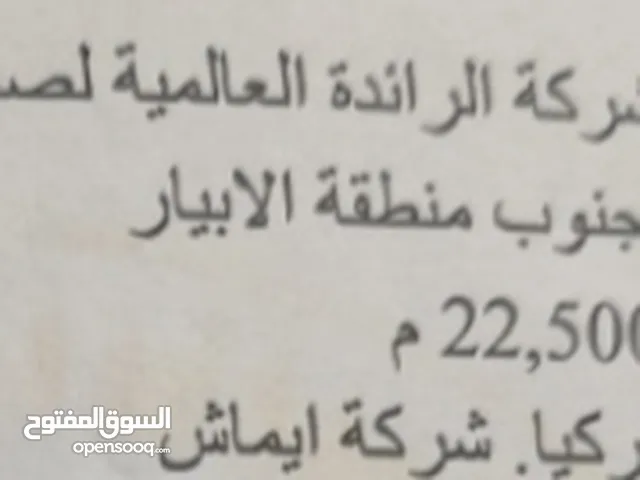 شركة الرائدة العالمية لصـ
جنوب منطقة الابيار
22,500 م
ركيا. شركة ايماش
السوق المفتوح
opensooq.com